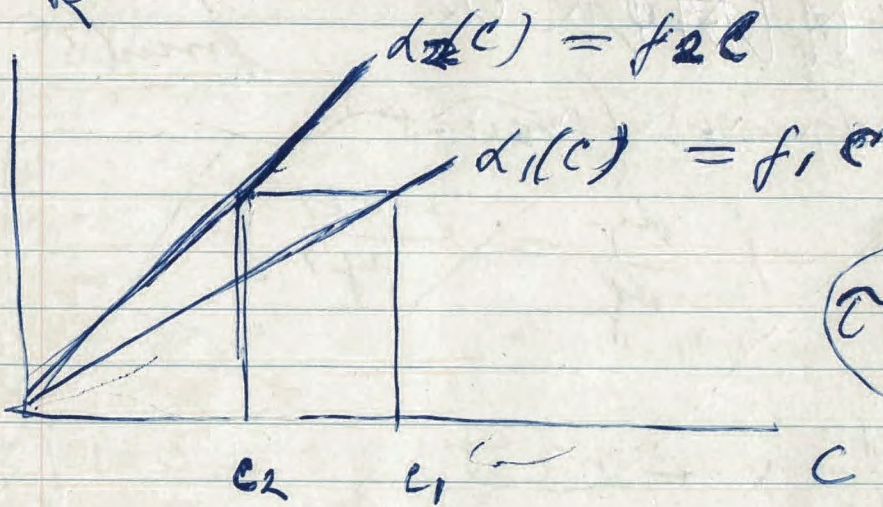 α₂(C) = f₂C
α₁(C) = f₁C
τ
C₂ C₁ C